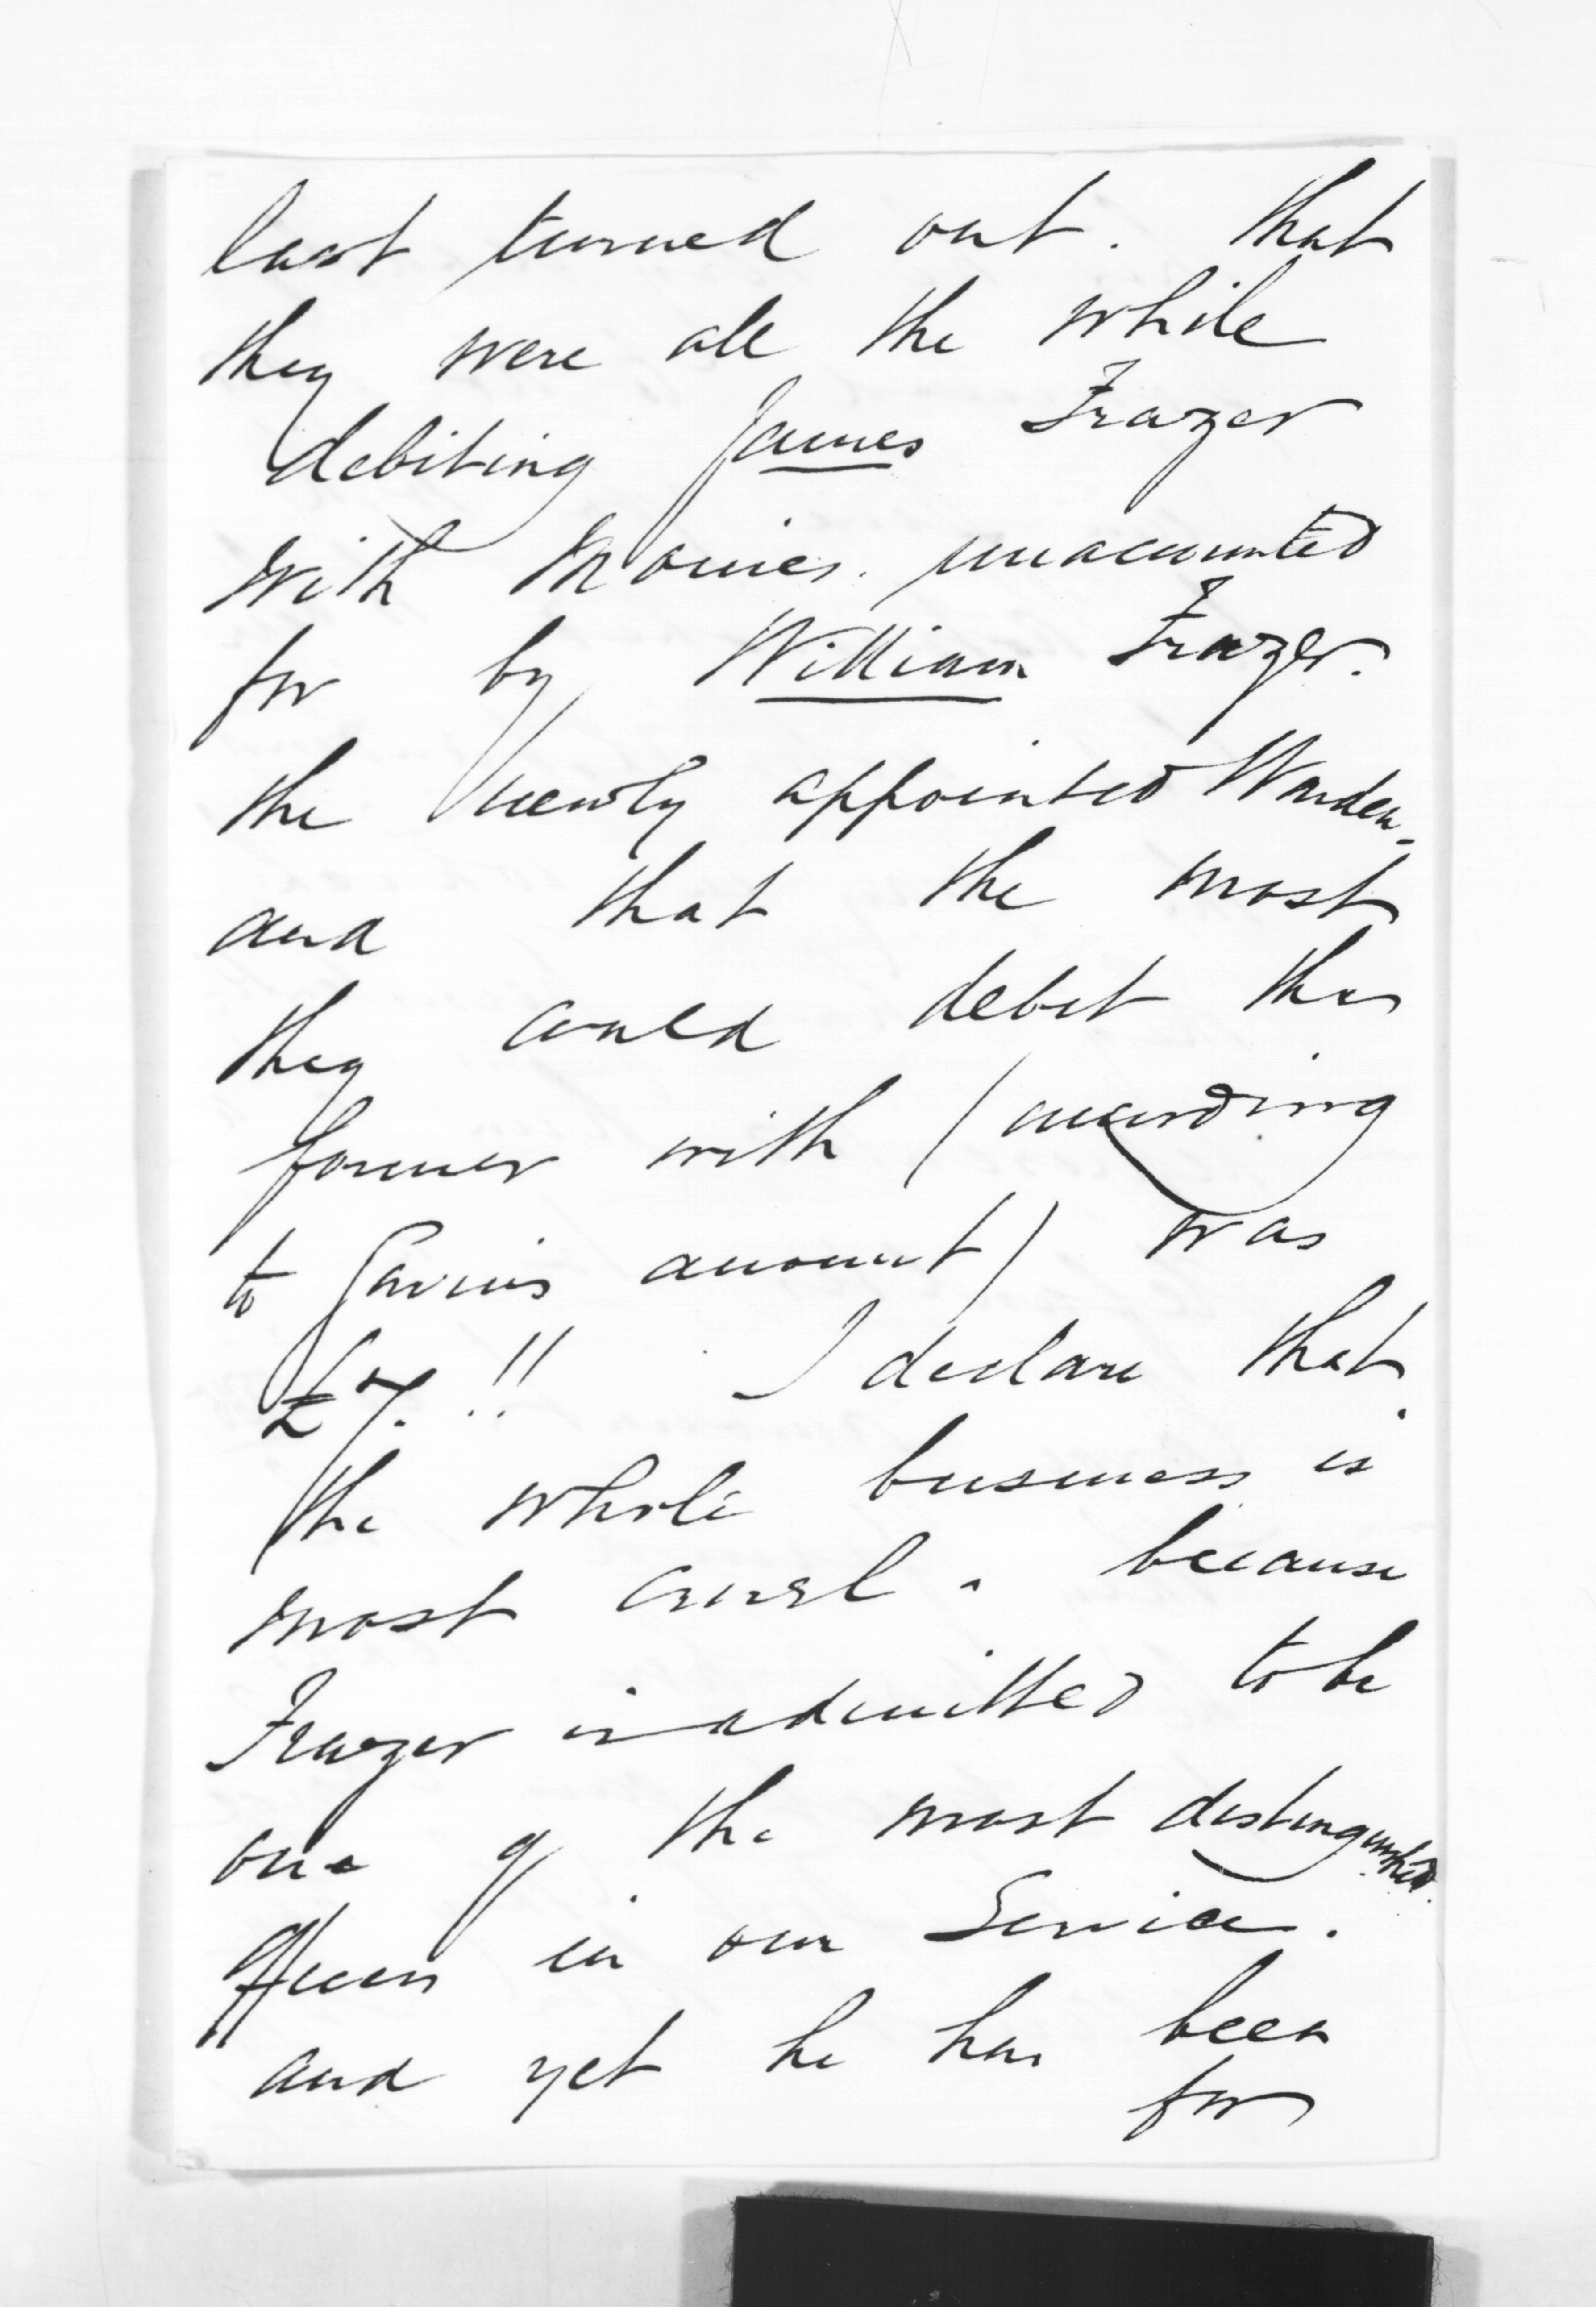 last turned out. that
they were all the while
debiting James Frazer
with Monies. unaccounted
for by William Frazer.
the newly appointed Warden.
and that the most
they could debit the
former with (according
to Gavins account) was
£7. !! I declare that
the whole business is
most cruel. because
Frazer is admitted to be
one of the most distinguished.
officers in our Service.
and yet he has been
for